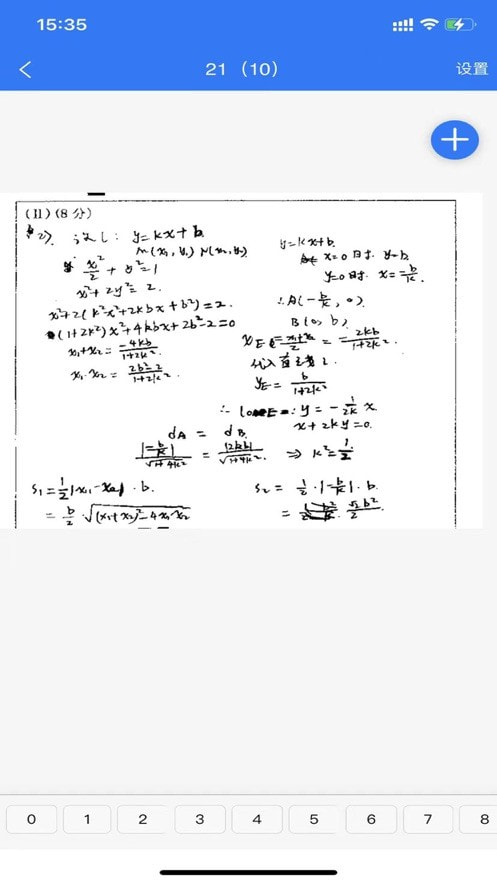 15:35
21（10）
设置
(II)(8分)
2). 设 l: y=kx+b.
M(x₁,y₁) N(x₂,y₂)
x²/2 + y²=1
x²+2y²=2.
x²+2(k²x²+2kbx+b²)=2.
(1+2k²)x²+4kbx+2b²-2=0
x₁+x₂ = -4kb/1+2k².
x₁·x₂ = 2b²-2/1+2k².
y=kx+b.
x=0时. y=b.
y=0时. x=-b/k.
∴A(-b/k, 0).
B(0, b).
x_E = x₁+x₂/2 = -2kb/1+2k².
代入直线l.
y_E = b/1+2k²
∴ l_OE: y = -1/2k x.
x+2ky=0.
d_A = d_B.
|-b/k|/√1+4k² = |2kb|/√1+4k². ⇒ k²=1/2
S₁=1/2|x₁-x₂|·b.
= b/2·√(x₁+x₂)²-4x₁x₂
S₂ = 1/2·|-b/k|·b.
= √2b²/2
0
1
2
3
4
5
6
7
8